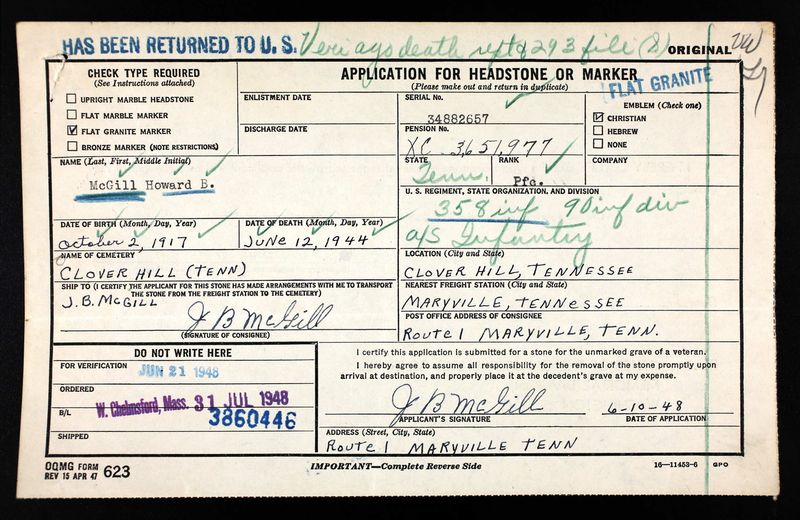 HAS BEEN RETURNED TO U. S. Veri ags death rept 8293 file (S) ORIGINAL
CHECK TYPE REQUIRED
(See Instructions attached)
UPRIGHT MARBLE HEADSTONE
FLAT MARBLE MARKER
FLAT GRANITE MARKER
BRONZE MARKER (NOTE RESTRICTIONS)
APPLICATION FOR HEADSTONE OR MARKER
(Please make out and return in duplicate)
FLAT GRANITE
ENLISTMENT DATE
DISCHARGE DATE
SERIAL No.
34882657
PENSION No.
XC 3,651,977
EMBLEM (Check one)
CHRISTIAN
HEBREW
NONE
NAME (Last, First, Middle Initial)
McGill Howard B.
STATE
Tenn.
RANK
Pfc.
COMPANY
U. S. REGIMENT, STATE ORGANIZATION, AND DIVISION
358 inf 90 inf div
a/s Infantry
DATE OF BIRTH (Month, Day, Year)
October 2, 1917
DATE OF DEATH (Month, Day, Year)
June 12, 1944
NAME OF CEMETERY
CLOVER HILL (TENN)
LOCATION (City and State)
CLOVER HILL, TENNESSEE
SHIP TO (I CERTIFY THE APPLICANT FOR THIS STONE HAS MADE ARRANGEMENTS WITH ME TO TRANSPORT
THE STONE FROM THE FREIGHT STATION TO THE CEMETERY)
J. B. McGILL
NEAREST FREIGHT STATION (City and State)
MARYVILLE, TENNESSEE
J B McGill
(SIGNATURE OF CONSIGNEE)
POST OFFICE ADDRESS OF CONSIGNEE
ROUTE 1 MARYVILLE, TENN.
DO NOT WRITE HERE
FOR VERIFICATION
JUN 21 1948
ORDERED
W. Chelmsford, Mass. 31 JUL 1948
B/L
3860446
SHIPPED
I certify this application is submitted for a stone for the unmarked grave of a veteran.
I hereby agree to assume all responsibility for the removal of the stone promptly upon
arrival at destination, and properly place it at the decedent's grave at my expense.
J B McGill 6-10-48
APPLICANT'S SIGNATURE DATE OF APPLICATION
ADDRESS (Street, City, State)
ROUTE 1 MARYVILLE TENN
OQMG FORM
REV 15 APR 47 623
IMPORTANT—Complete Reverse Side
16—11453-6 GPO